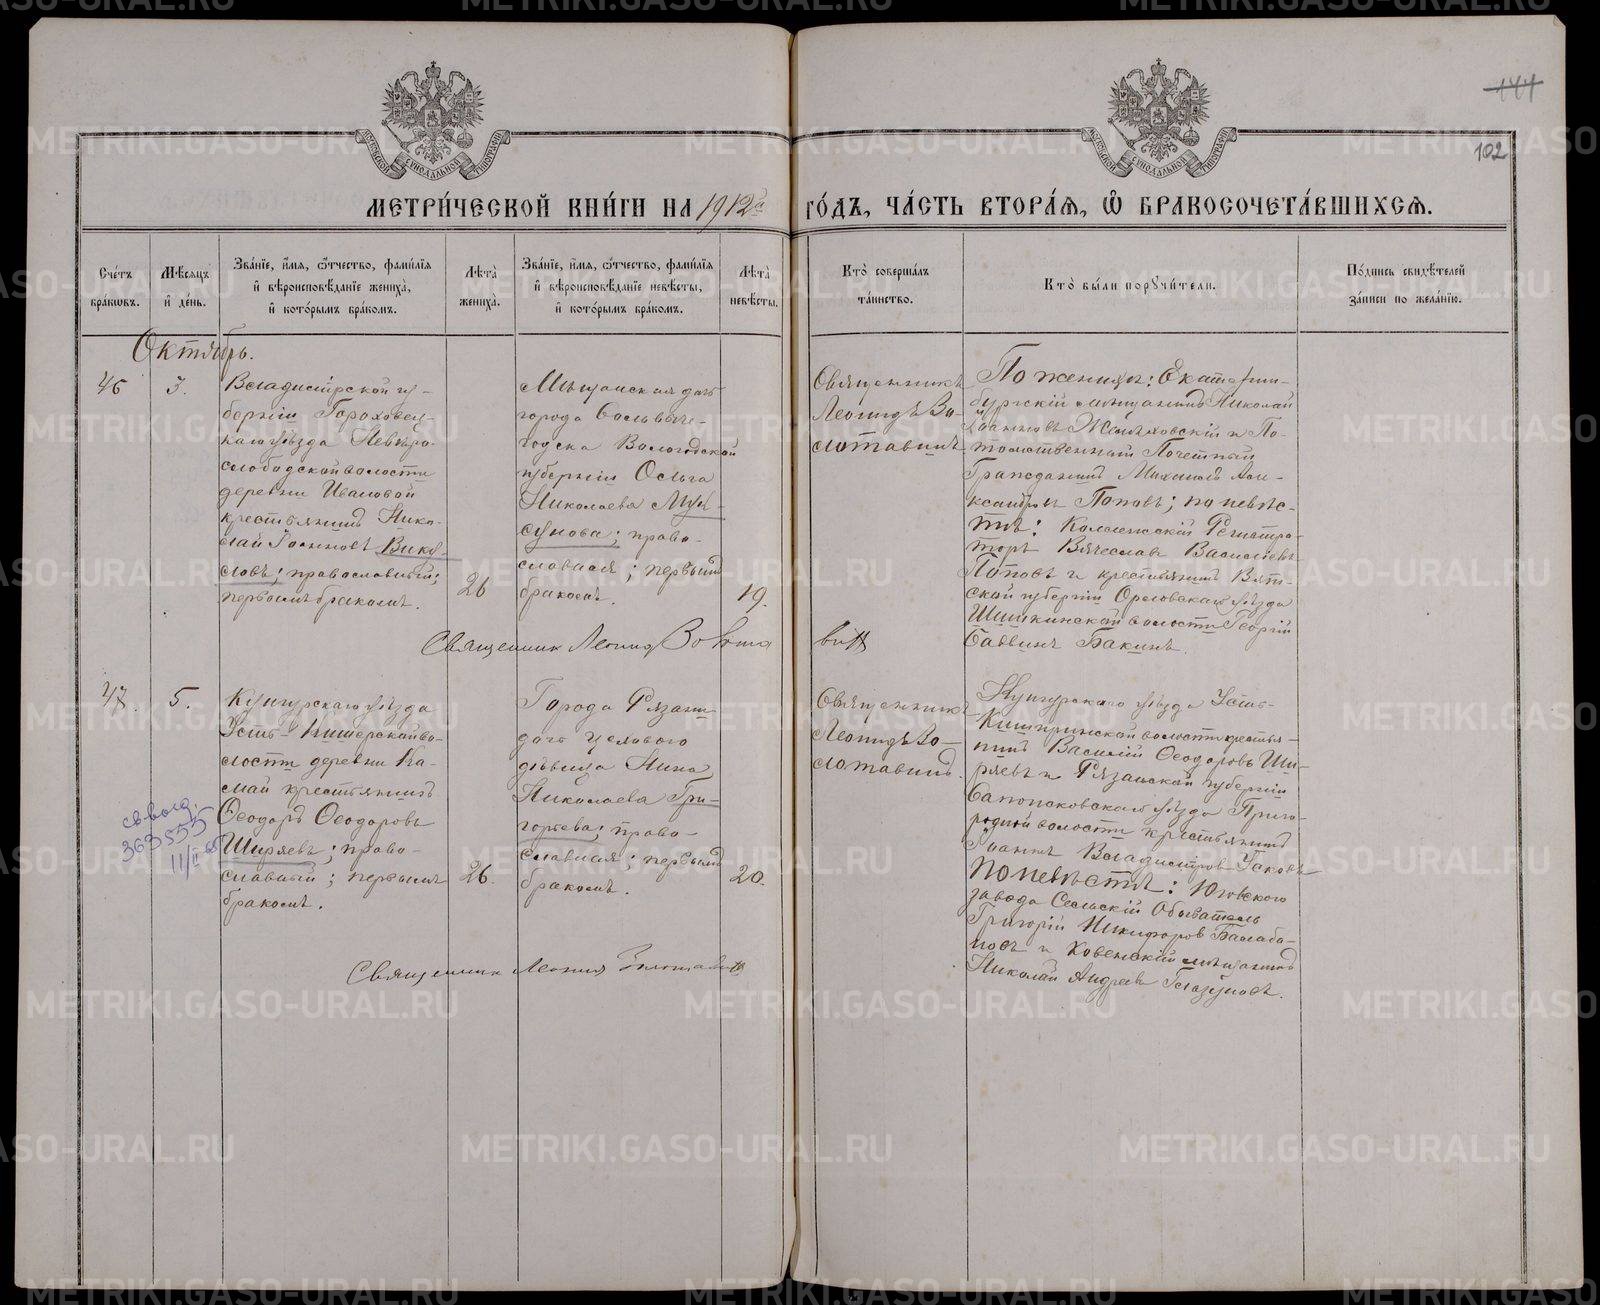 144
102
МЕТРИ́ЧЕСКОЙ КНИ́ГИ НА 1912й ГО́ДЪ, ЧА́СТЬ ВТОРА́Я, Ѡ҆ БРАКОСОЧЕТА́ВШИХСЯ.
Сче́тъ бра́ковъ.
Мѣ́сяцъ и҆ де́нь.
Зва́нїе, и҆́мя, ѻ҆́тчество, фами́лїя и҆ вѣроисповѣ́данїе жениха̀, и҆ кото́рымъ бра́комъ.
Лѣта̀ жениха̀.
Зва́нїе, и҆́мя, ѻ҆́тчество, фами́лїя и҆ вѣроисповѣ́данїе невѣ́сты, и҆ кото́рымъ бра́комъ.
Лѣта̀ невѣ́сты.
Кто̀ соверша́лъ та́инство.
Кто̀ бы́ли поручи́тели.
По́дпись свидѣ́телей за́писи по жела́нїю.
Октябрь.
46
3.
Владимірской гу-
берніи Гороховец-
каго уѣзда
слободской волости
деревни Ивановой
крестьянинъ Нико-
лай Іоанновъ Вику-
ловъ; православный;
первымъ бракомъ.
26
Мѣщанская дочь
города Сольвыче-
годска Вологодской
губерніи Ольга
Николаева
право-
славная; первымъ
бракомъ.
19.
Священникъ
Леонидъ Зо-
лотавинъ
По женихѣ: Екатерин-
бургскій мѣщанинъ Николай
Іоанновъ и По-
томственный Почетный
Гражданинъ Михаилъ Алек-
сандровъ Поповъ; по невѣс-
тѣ: Коллежскій Регистра-
торъ Вячеславъ Васильевъ
Поповъ и крестьянинъ Вят-
ской губерніи Орловскаго уѣзда
Шишкинской волости Георгій
Саввинъ Бакинъ.
Священник Леонид Золотавин
47.
5.
Кунгурскаго уѣзда
Усть-Кишерской во-
лости деревни Ка-
май крестьянинъ
Ѳеодоръ Ѳеодоровъ
Ширяевъ; право-
славный; первымъ
бракомъ.
26.
Города Рязани
дочь цехового
дѣвица Нина
Николаева Гри-
горьева; право-
славная; первымъ
бракомъ.
20.
Священникъ
Леонидъ Зо-
лотавинъ.
Кунгурского уѣзда Усть-
Кишеринской волости крестья-
нинъ Василій Ѳеодоровъ Ши-
ряевъ и Рязанской губерніи
Сапожковскаго уѣзда Приго-
родной волости крестьянинъ
Іоаннъ Владиміровъ Усковъ
По невѣстѣ: Юговского
завода Сельскій Обыватель
Григорій Никифоров Балаба-
новъ и Ковенскій мѣщанинъ
Николай Андреев Глазуновъ.
Священник Леонид Золотавин
св. выд.
363555
11/II-65
METRIKI.GASO-URAL.RU